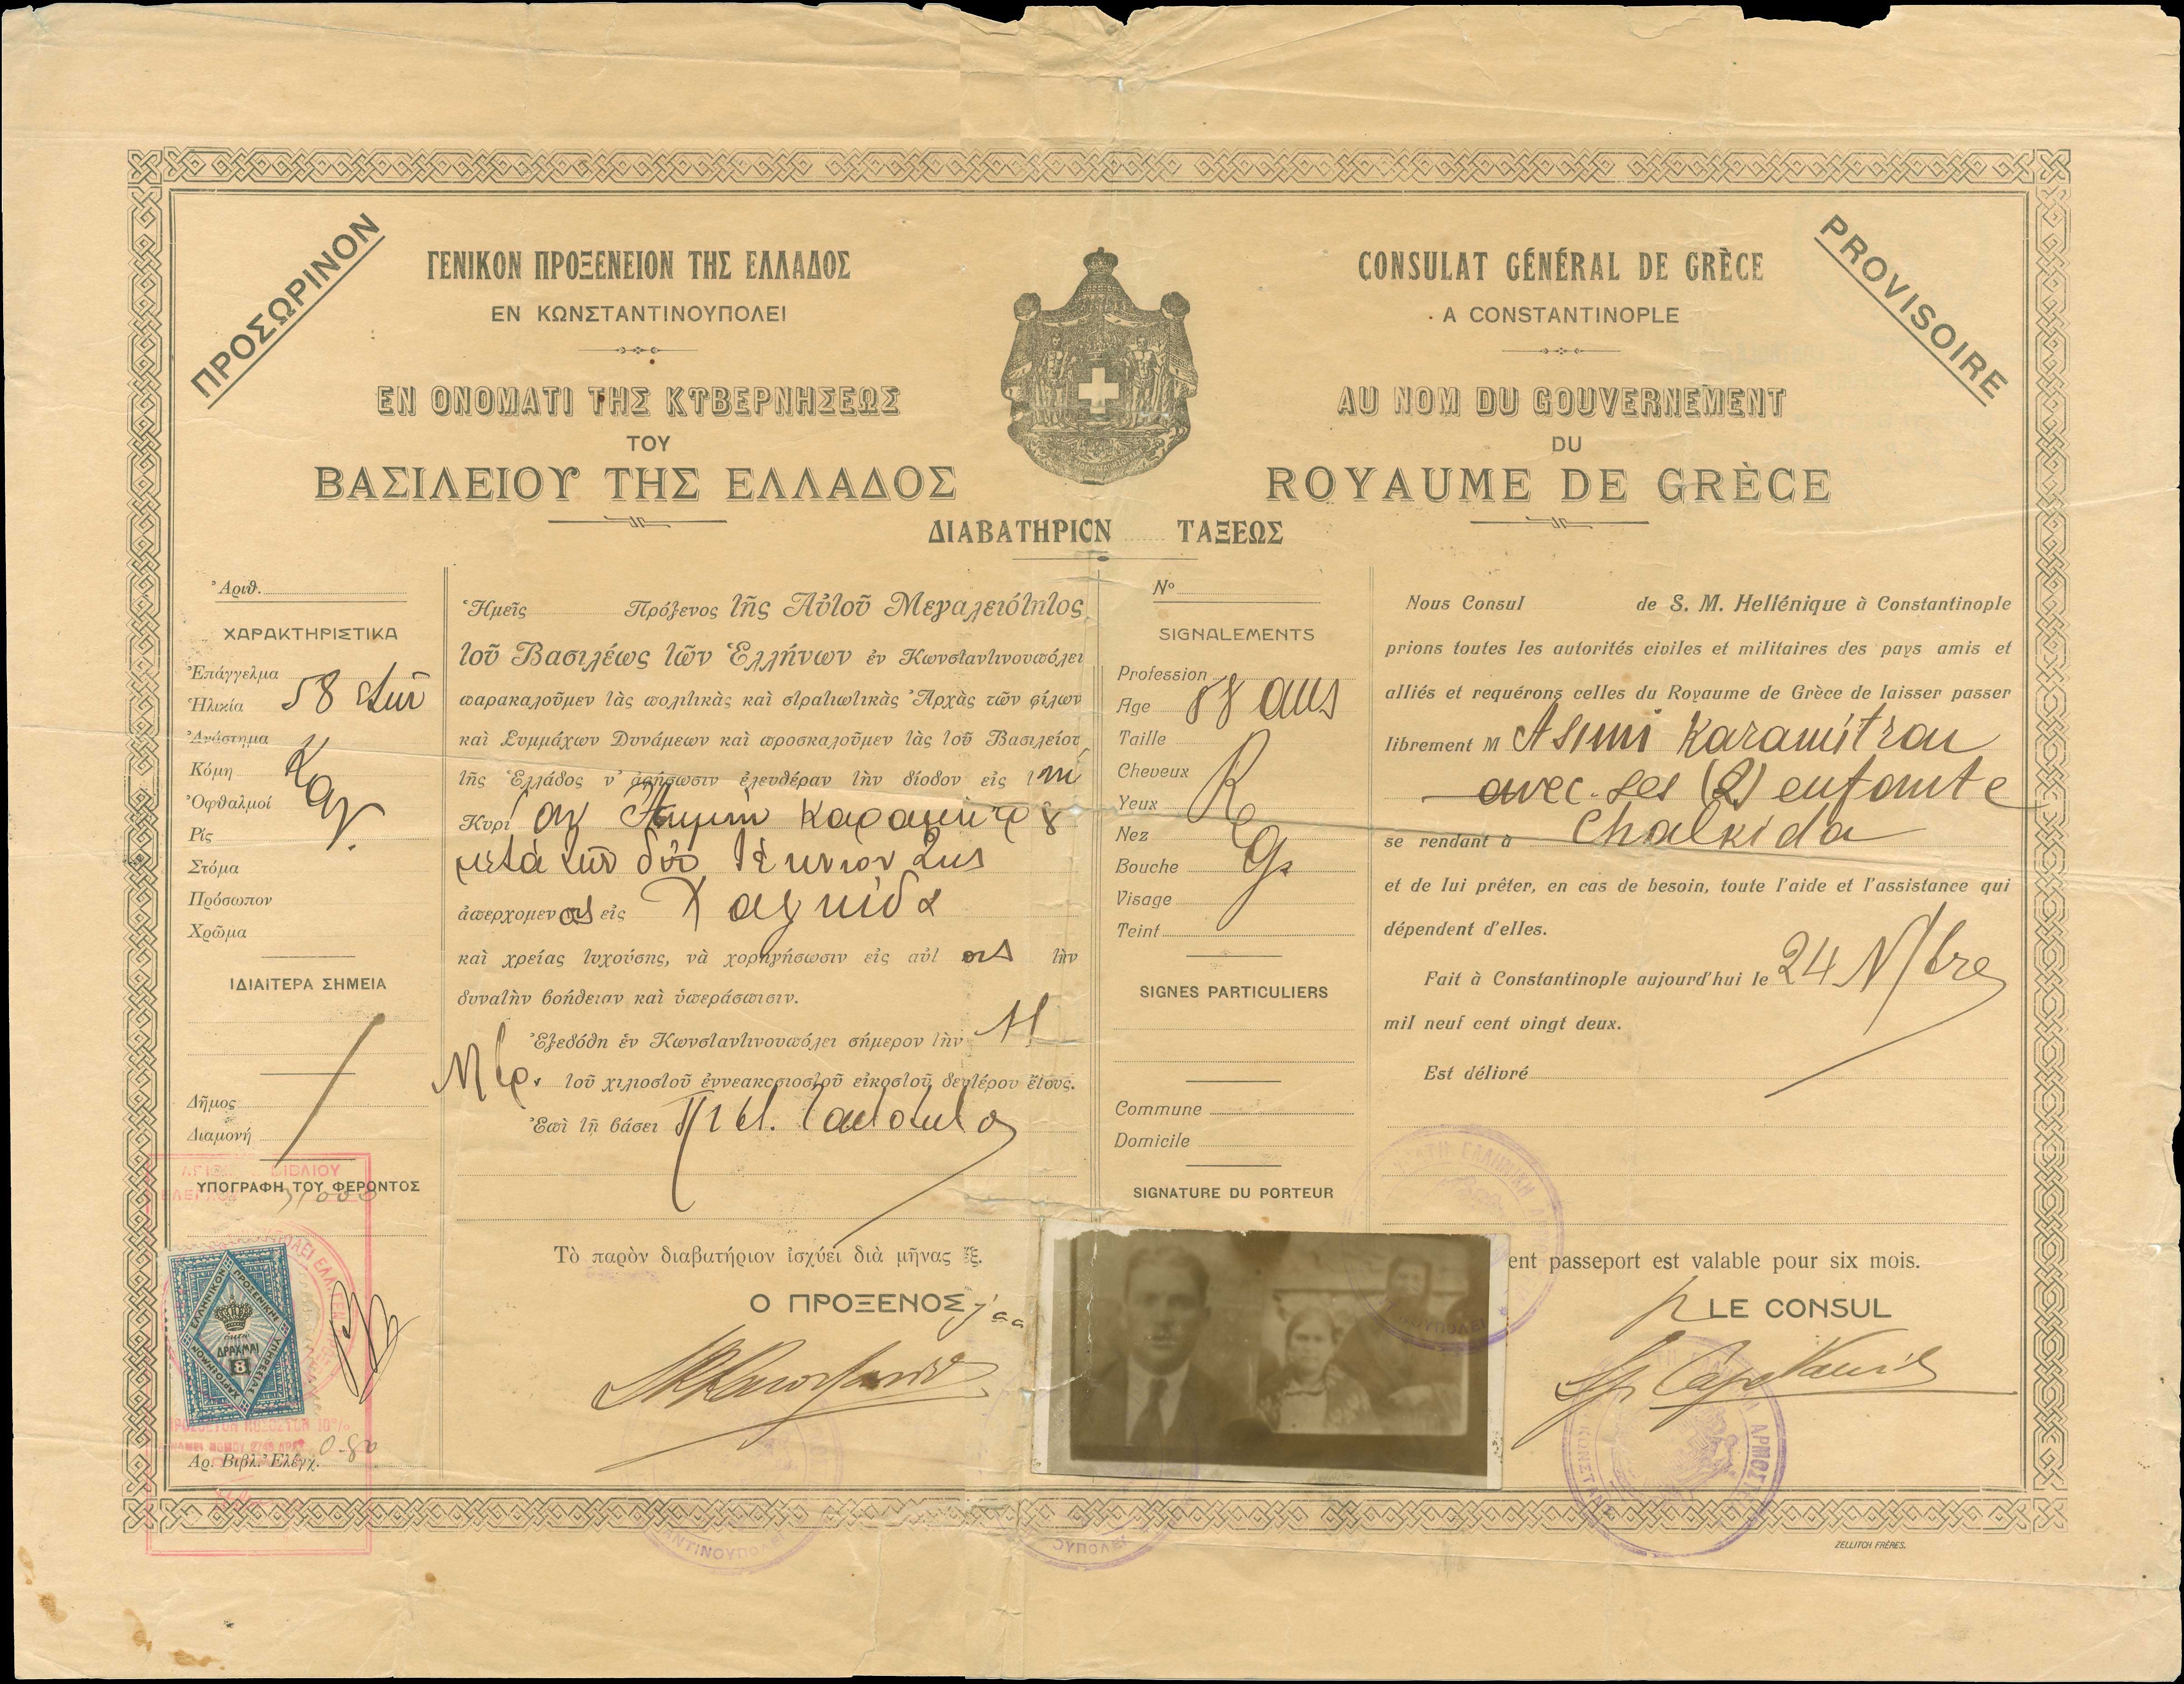 ΠΡΟΣΩΡΙΝΟΝ
ΓΕΝΙΚΟΝ ΠΡΟΞΕΝΕΙΟΝ ΤΗΣ ΕΛΛΑΔΟΣ
ΕΝ ΚΩΝΣΤΑΝΤΙΝΟΥΠΟΛΕΙ
ΕΝ ΟΝΟΜΑΤΙ ΤΗΣ ΚΥΒΕΡΝΗΣΕΩΣ
ΤΟΥ
ΒΑΣΙΛΕΙΟΥ ΤΗΣ ΕΛΛΑΔΟΣ
PROVISOIRE
CONSULAT GÉNÉRAL DE GRÈCE
A CONSTANTINOPLE
AU NOM DU GOUVERNEMENT
DU
ROYAUME DE GRÈCE
ΔΙΑΒΑΤΗΡΙΟΝ ΤΑΞΕΩΣ
Ἀριθ.
ΧΑΡΑΚΤΗΡΙΣΤΙΚΑ
Ἐπάγγελμα
Ἡλικία 58 ἐτῶν
Ἀνάστημα
Κόμη
Ὀφθαλμοί
Ρίς
Στόμα
Πρόσωπον
Χρῶμα
ΙΔΙΑΙΤΕΡΑ ΣΗΜΕΙΑ
Δῆμος
Διαμονή
ΥΠΟΓΡΑΦΗ ΤΟΥ ΦΕΡΟΝΤΟΣ
ΕΛΛΗΝΙΚΟΝ
ΠΡΟΞΕΝΙΚΗΣ
ΥΠΗΡΕΣΙΑΣ
ΧΑΡΤΟΣΗΜΟΝ
ΔΡΑΧΜΑΙ
8
Ἀρ. Βιβλ. Ἐλέγχ.
Ἡμεῖς Πρόξενος τῆς Αὐτοῦ Μεγαλειότητος
τοῦ Βασιλέως τῶν Ἑλλήνων ἐν Κωνσταντινουπόλει
παρακαλοῦμεν τὰς πολιτικὰς καὶ στρατιωτικὰς Ἀρχὰς τῶν φίλων
καὶ Συμμάχων Δυνάμεων καὶ προσκαλοῦμεν τὰς τοῦ Βασιλείου
τῆς Ἑλλάδος ν' ἀφήσωσιν ἐλευθέραν τὴν δίοδον εἰς τὴν
Κυρίαν Ἀσημὴν Καραμήτρου
μετὰ τῶν δύο τέκνων της
ἀπερχομένας εἰς Χαλκίδα
καὶ χρείας τυχούσης, νὰ χορηγήσωσιν εἰς αὐτὰς τὴν
δυνατὴν βοήθειαν καὶ ὑπεράσπισιν.
Ἐξεδόθη ἐν Κωνσταντινουπόλει σήμερον τὴν 11
Νβρ. τοῦ χιλιοστοῦ ἐννεακοσιοστοῦ εἰκοστοῦ δευτέρου ἔτους.
Ἐπὶ τῇ βάσει Πιστ. Ταυτότητος
Τὸ παρὸν διαβατήριον ἰσχύει διὰ μῆνας ἕξ.
Ο ΠΡΟΞΕΝΟΣ
Nº
SIGNALEMENTS
Profession
Age 58 ans
Taille
Cheveux
Yeux
Nez
Bouche
Visage
Teint
SIGNES PARTICULIERS
Commune
Domicile
SIGNATURE DU PORTEUR
Nous Consul de S. M. Hellénique à Constantinople
prions toutes les autorités civiles et militaires des pays amis et
alliés et requérons celles du Royaume de Grèce de laisser passer
librement M Asimi Karamitrou
avec ses (2) enfants
se rendant à Chalkida
et de lui prêter, en cas de besoin, toute l'aide et l'assistance qui
dépendent d'elles.
Fait à Constantinople aujourd'hui le 24 N/bre
mil neuf cent vingt deux.
Est délivré
ent passeport est valable pour six mois.
LE CONSUL
ZELLITCH FRÈRES.